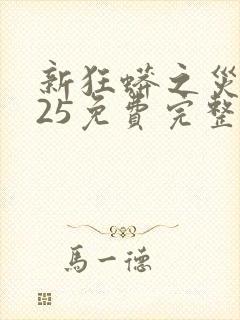 新狂蟒之災
25免費完整
馬一德